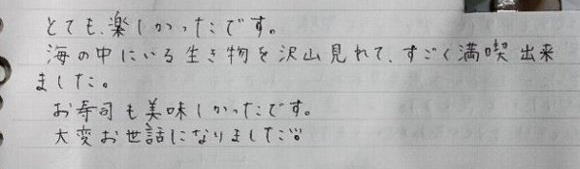 とても、楽しかったです。
海の中にいる生き物を沢山見れて、すごく満喫出来
ました。
お寿司も美味しかったです。
大変お世話になりました。